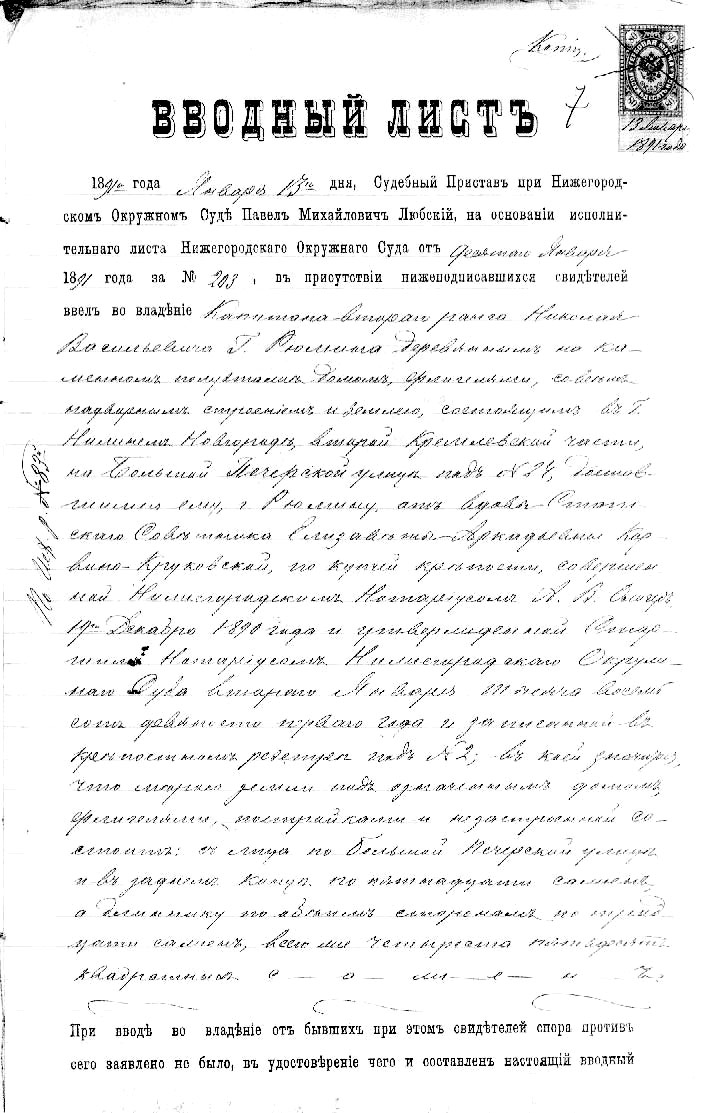 Копія.
7
13 Января
1891 года
ВВОДНЫЙ ЛИСТЪ
1891 го года Января 13 го дня, Судебный Приставъ при Нижегород-
скомъ Окружномъ Судѣ Павелъ Михайловичъ Любскій, на основаніи исполни-
тельнаго листа Нижегородскаго Окружнаго Суда отъ девятаго Января
1891 года за № 203, въ присутствіи нижеподписавшихся свидѣтелей
ввелъ во владѣніе Капитана втораго ранга Николая
Васильевича Г. Рюмина деревяннымъ на ка-
менномъ полуэтажѣ домомъ, флигелями, со всемъ
надворнымъ строеніемъ и землею, состоящимъ въ Г.
Нижнемъ Новгородѣ, второй Кремлевской части,
на Большой Печерской улицѣ подъ № 24, достав-
шимся ему, г. Рюмину, отъ вдовы Стат-
скаго Совѣтника Елизаветы Аркадьевны Кор-
вино-Круковской, по купчей крѣпости, совершен-
ной Нижегородскимъ Нотаріусомъ А. В.
19 го Декабря 1890 года и утвержденной Стар-
шимъ Нотаріусомъ Нижегородскаго Окруж-
наго Суда втораго Января тысяча восемь
сотъ девяносто перваго года и записанной въ
крѣпостномъ реестрѣ подъ № 2; въ коей значится,
что мѣрою земли подъ означеннымъ домомъ,
флигелями, постройками и незастроенной со-
стоитъ: съ лица по Большой Печерской улицѣ
и въ заднемъ концѣ по пятнадцати сажень,
а длиннику по обѣимъ сторонамъ по трид-
цати сажень, всего же четыреста пятьдесятъ
квадратныхъ с — а — ж — е — н — ъ.
При вводѣ во владѣніе отъ бывшихъ при этомъ свидѣтелей спора противъ
сего заявлено не было, въ удостовѣреніе чего и составленъ настоящій вводный
По Исх. р. № 835